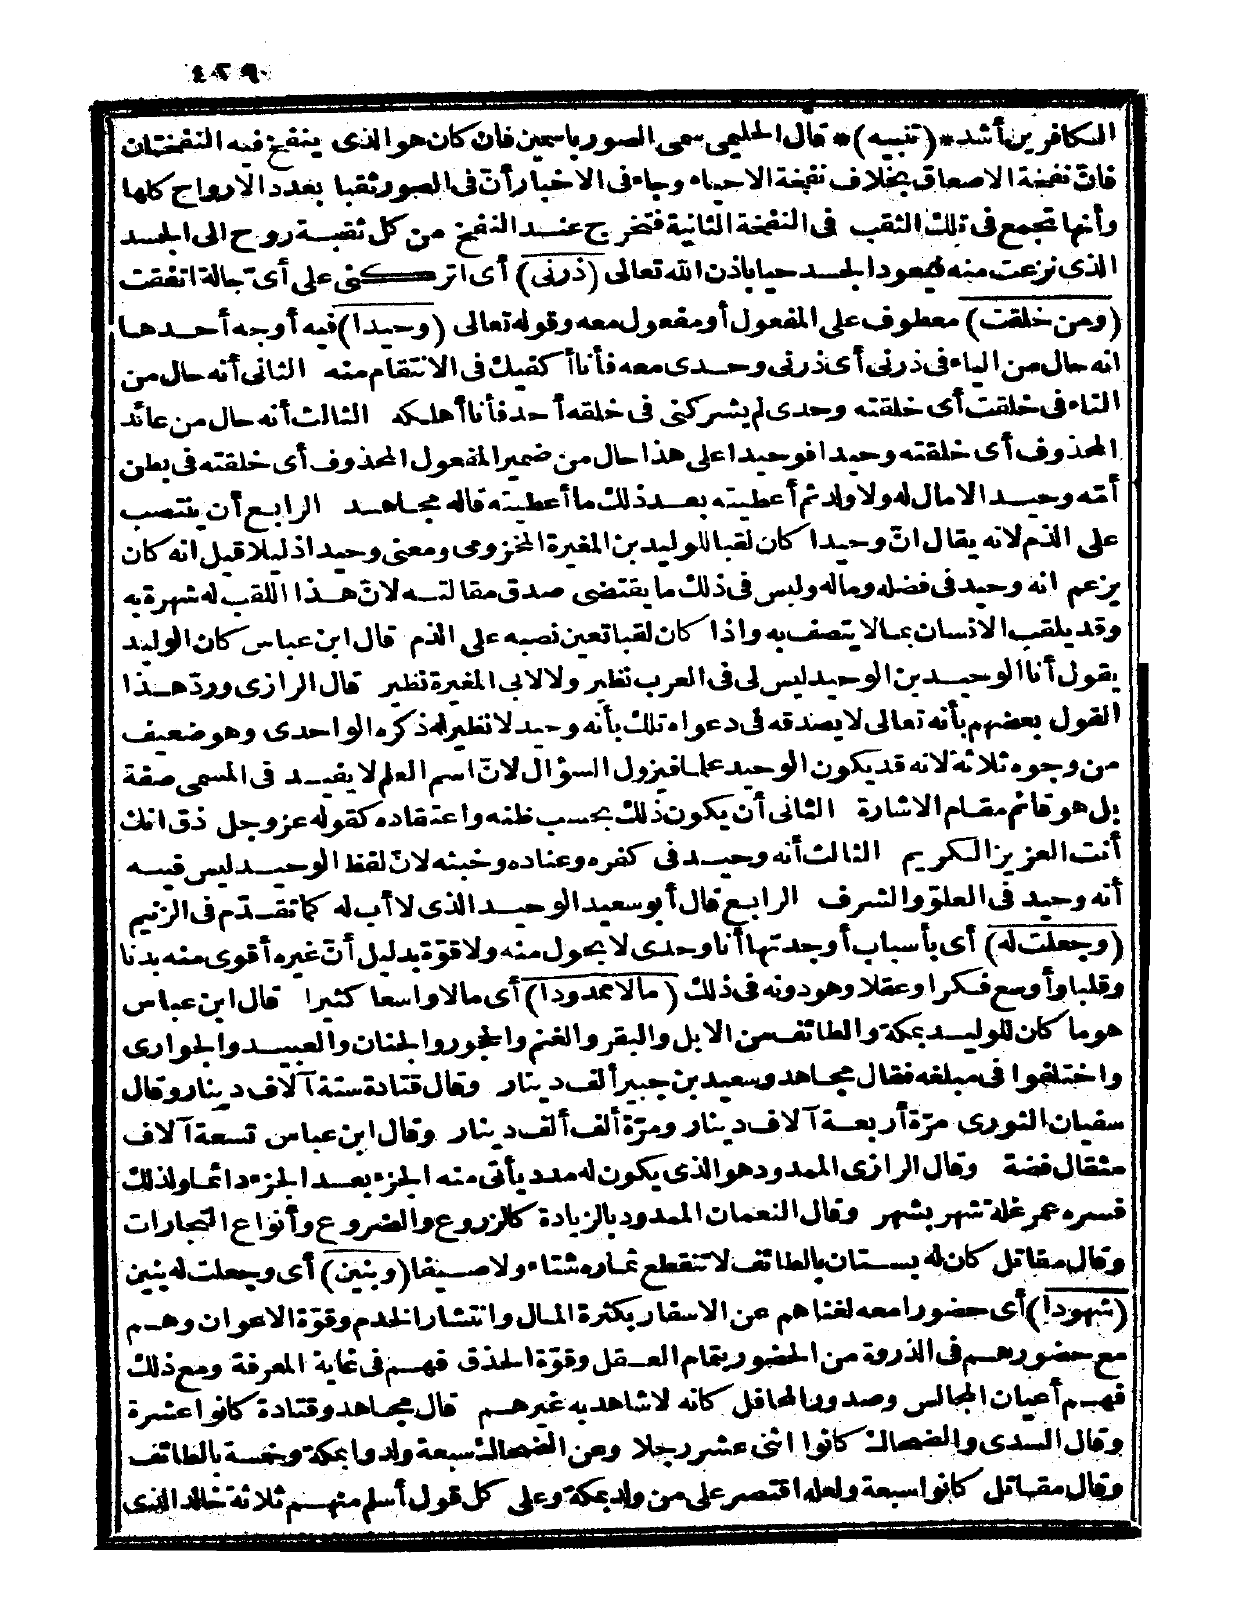 الكافرين أشد * (تنبيه) * قال الحليمى سمى الصور باسمين فان كان هو الذى ينفخ فيه النفختان
فانّ نفخة الاصعاق بخلاف نفخة الاحياء وجاء فى الاخبار أنّ فى الصور ثقبا بعدد الارواح كلها
وأنها تجمع فى تلك الثقب فى النفخة الثانية فتخرج عند النفخ من كل ثقبة روح الى الجسد
الذى نزعت منه فيعود الجسد حيا باذن الله تعالى (ذرنى) أى اتركنى على أىّ حالة اتفقت
(ومن خلقت) معطوف على المفعول أو مفعول معه وقوله تعالى (وحيدا) فيه أوجه أحدها
انه حال من الياء فى ذرنى أى ذرنى وحدى معه فأنا أكفيك فى الانتقام منه الثانى أنه حال من
التاء فى خلقت أى خلقته وحدى لم يشركنى فى خلقه أحد فأنا أهلكه الثالث أنه حال من عائد
المحذوف أى خلقته وحيدا فوحيدا على هذا حال من ضمير المفعول المحذوف أى خلقته فى بطن
أمّه وحيدا لا مال له ولا ولد ثم أعطيته بعد ذلك ما أعطيته قاله مجاهد الرابع أن ينتصب
على الذم لانه يقال انّ وحيدا كان لقبا للوليد بن المغيرة المخزومى ومعنى وحيدا ذليلا قيل انه كان
يزعم انه وحيد فى فضله وماله وليس فى ذلك ما يقتضى صدق مقالته لانّ هذا اللقب له شهرة به
وقد يلقب الانسان بما لا يتصف به واذا كان لقبا تعين نصبه على الذم قال ابن عباس كان الوليد
يقول أنا الوحيد بن الوحيد ليس لى فى العرب نظير ولا لابى المغيرة نظير قال الرازى وردّ هذا
القول بعضهم بأنه تعالى لا يصدقه فى دعواه تلك بأنه وحيد لا نظير له ذكره الواحدى وهو ضعيف
من وجوه ثلاثة لانه قد يكون الوحيد علما فيزول السؤال لانّ اسم العلم لا يفيد فى المسمى صفة
بل هو قائم مقام الاشارة الثانى أن يكون ذلك بحسب ظنه واعتقاده كقوله عز وجل ذق انك
أنت العزيز الكريم الثالث أنه وحيد فى كفره وعناده وخبثه لانّ لفظ الوحيد ليس فيه
أنه وحيد فى العلوّ والشرف الرابع قال أبو سعيد الوحيد الذى لا أب له كما تقدّم فى الزنيم
(وجعلت له) أى بأسباب أوجدتها أنا وحدى لا بحول منه ولا قوّة بدليل أنّ غيره أقوى منه بدنا
وقلبا وأوسع فكرا وعقلا وهو دونه فى ذلك (مالا ممدودا) أى مالا واسعا كثيرا قال ابن عباس
هو ما كان للوليد بمكة والطائف من الابل والبقر والغنم والحجور والجنان والعبيد والجوارى
واختلفوا فى مبلغه فقال مجاهد وسعيد بن جبير ألف دينار وقال قتادة ستة آلاف دينار وقال
سفيان الثورى مرّة أربعة آلاف دينار ومرّة ألف ألف دينار وقال ابن عباس تسعة آلاف
مثقال فضة وقال الرازى الممدود هو الذى يكون له مدد يأتى منه الجزء بعد الجزء دائما ولذلك
فسره عمر غلة شهر بشهر وقال النعمان الممدود بالزيادة كالزروع والضروع وأنواع التجارات
وقال مقاتل كان له بستان بالطائف لا تنقطع ثماره شتاء ولا صيفا (وبنين) أى وجعلت له بنين
(شهودا) أى حضورا معه لغناهم عن الاسفار بكثرة المال وانتشار الخدم وقوّة الاعوان وهم
مع حضورهم فى الذروة من الحضور بتمام العقل وقوّة الحذق فهم فى غاية المعرفة ومع ذلك
فهم أعيان المجالس وصدور المحافل كانه لا شاهد به غيرهم قال مجاهد وقتادة كانوا عشرة
وقال السدى والضحاك كانوا اثنى عشر رجلا وعن الضحاك سبعة ولدوا بمكة وخمسة بالطائف
وقال مقاتل كانوا سبعة ولعله اقتصر على من ولد بمكة وعلى كل قول أسلم منهم ثلاثة خالد الذى